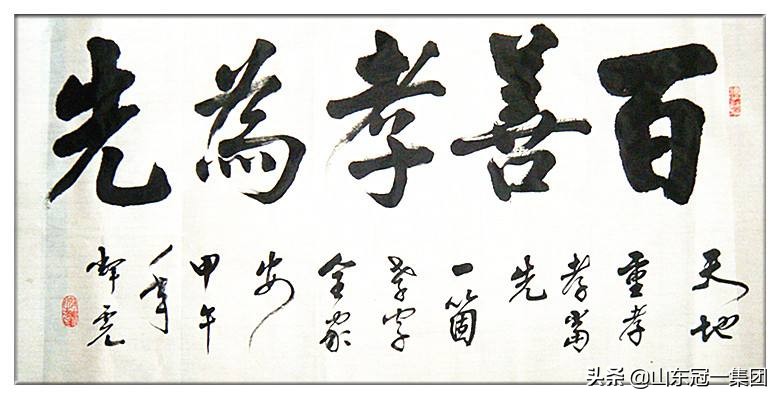 百善孝為先
天地
重孝
孝當
先
一箇
孝字
全家
安
甲午
头条 @山东冠一集团